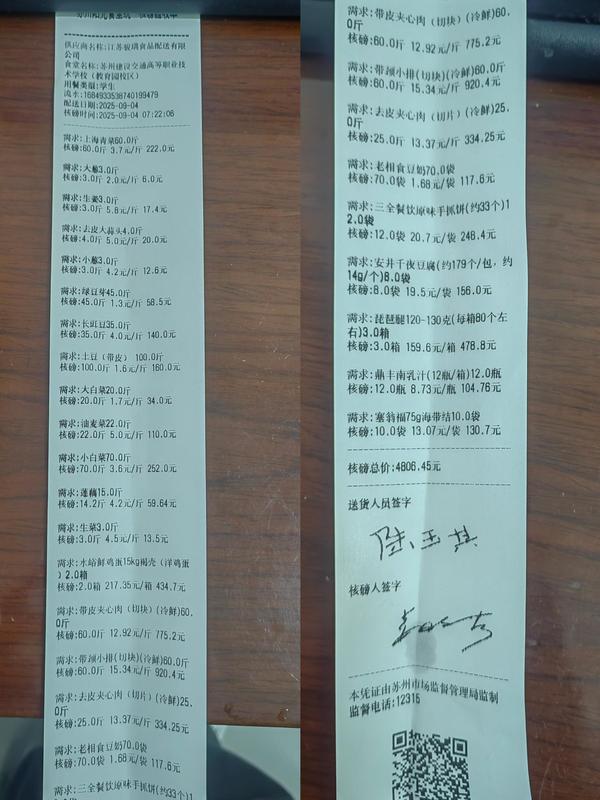 供应商名称:江苏骏瑀食品配送有限
公司
食堂名称:苏州建设交通高等职业技
术学校(教育园校区)
用餐类型:学生
流水:1684933538740199479
配送日期:2025-09-04
核磅时间:2025-09-04 07:22:06
需求:上海青菜60.0斤
核磅:60.0斤 3.7元/斤 222.0元
需求:大葱3.0斤
核磅:3.0斤 2.0元/斤 6.0元
需求:生姜3.0斤
核磅:3.0斤 5.8元/斤 17.4元
需求:去皮大蒜头4.0斤
核磅:4.0斤 5.0元/斤 20.0元
需求:小葱3.0斤
核磅:3.0斤 4.2元/斤 12.6元
需求:绿豆芽45.0斤
核磅:45.0斤 1.3元/斤 58.5元
需求:长豇豆35.0斤
核磅:35.0斤 4.0元/斤 140.0元
需求:土豆(带皮) 100.0斤
核磅:100.0斤 1.6元/斤 160.0元
需求:大白菜20.0斤
核磅:20.0斤 1.7元/斤 34.0元
需求:油麦菜22.0斤
核磅:22.0斤 5.0元/斤 110.0元
需求:小白菜70.0斤
核磅:70.0斤 3.6元/斤 252.0元
需求:莲藕15.0斤
核磅:14.2斤 4.2元/斤 59.64元
需求:生菜3.0斤
核磅:3.0斤 4.5元/斤 13.5元
需求:水峪鲜鸡蛋15kg褐壳(洋鸡蛋
)2.0箱
核磅:2.0箱 217.35元/箱 434.7元
需求:带皮夹心肉(切块)(冷鲜)60.
0斤
核磅:60.0斤 12.92元/斤 775.2元
需求:带颈小排(切块)(冷鲜)60.0斤
核磅:60.0斤 15.34元/斤 920.4元
需求:去皮夹心肉(切片)(冷鲜)25.
0斤
核磅:25.0斤 13.37元/斤 334.25元
需求:老相食豆奶70.0袋
核磅:70.0袋 1.68元/袋 117.6元
需求:三全餐饮原味手抓饼(约33个)1
需求:带皮夹心肉(切块)(冷鲜)60.
0斤
核磅:60.0斤 12.92元/斤 775.2元
需求:带颈小排(切块)(冷鲜)60.0斤
核磅:60.0斤 15.34元/斤 920.4元
需求:去皮夹心肉(切片)(冷鲜)25.
0斤
核磅:25.0斤 13.37元/斤 334.25元
需求:老相食豆奶70.0袋
核磅:70.0袋 1.68元/袋 117.6元
需求:三全餐饮原味手抓饼(约33个)1
2.0袋
核磅:12.0袋 20.7元/袋 248.4元
需求:安井千夜豆腐(约179个/包,约
14g/个)8.0袋
核磅:8.0袋 19.5元/袋 156.0元
需求:琵琶腿120-130克(每箱80个左
右)3.0箱
核磅:3.0箱 159.6元/箱 478.8元
需求:鼎丰南乳汁(12瓶/箱)12.0瓶
核磅:12.0瓶 8.73元/瓶 104.76元
需求:塞翁福75g海带结10.0袋
核磅:10.0袋 13.07元/袋 130.7元
核磅总价:4806.45元
送货人员签字
核磅人签字
本凭证由苏州市场监督管理局监制
监督电话:12315